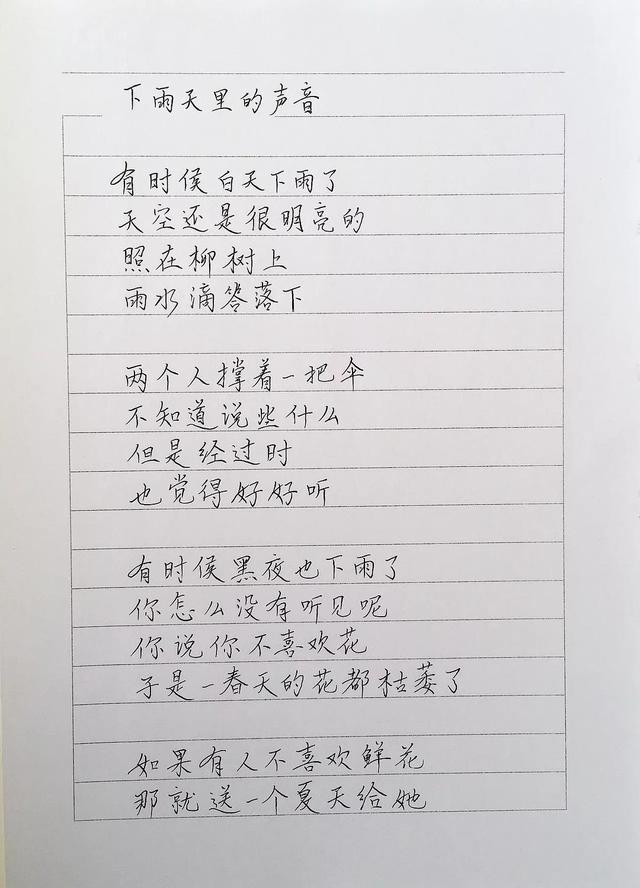 下雨天里的声音
有时候白天下雨了
天空还是很明亮的
照在柳树上
雨水滴答落下
两个人撑着一把伞
不知道说些什么
但是经过时
也觉得好好听
有时候黑夜也下雨了
你怎么没有听见呢
你说你不喜欢花
于是一春天的花都枯萎了
如果有人不喜欢鲜花
那就送一个夏天给她